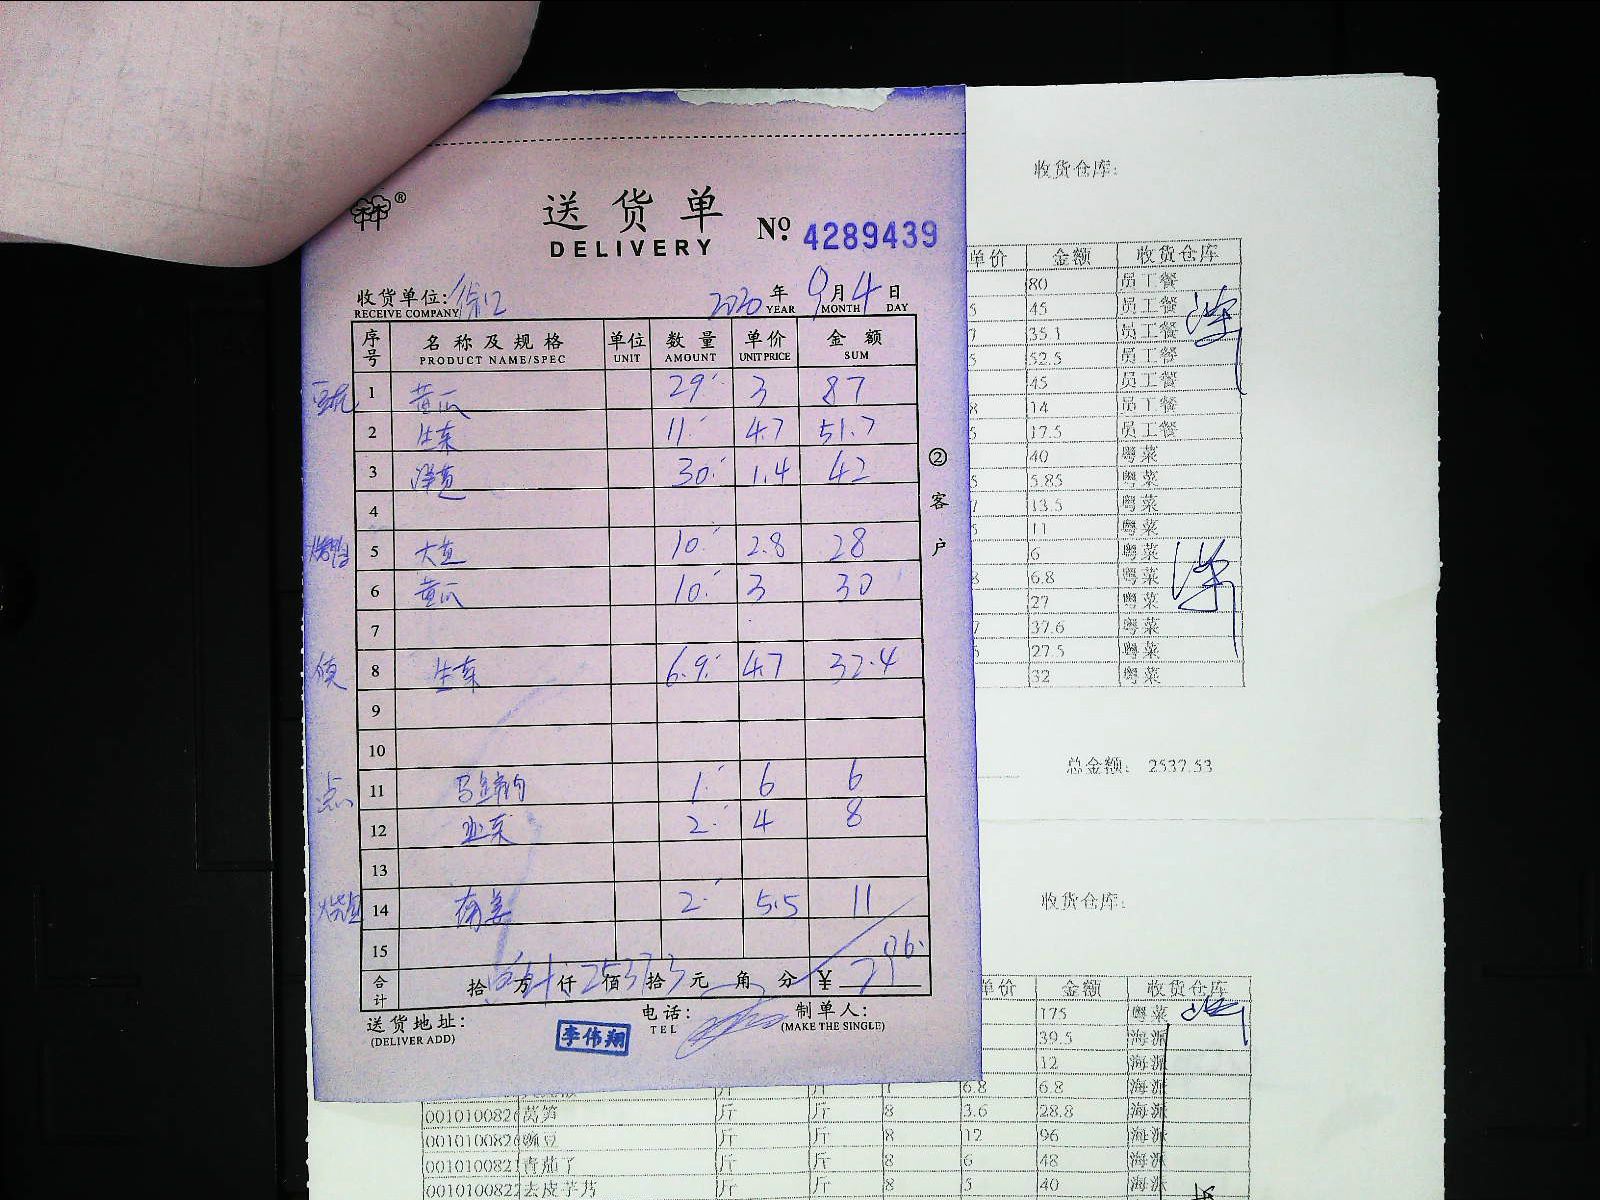 送货单
DELIVERY
№ 4289439
收货单位: 徐汇 2020年9月4日
RECEIVE COMPANY YEAR MONTH DAY
序号 名称及规格 单位 数量 单价 金额
PRODUCT NAME/SPEC UNIT AMOUNT UNIT PRICE SUM
1 黄瓜 29 3 87
2 生菜 11 4.7 51.7
3 洋葱 30 1.4 42
4
5 大葱 10 2.8 28
6 黄瓜 10 3 30
7
8 生菜 6.9 4.7 32.4
9
10
点 11 1 6 6
12 2 4 8
13
14 2 5.5 11
15
合计 拾 万 仟 佰 拾 元 角 分 ¥ 296.
②客户
送货地址:
(DELIVER ADD)
电话:
TEL
制单人:
(MAKE THE SINGLE)
李伟翔
收货仓库:
单价 金额 收货仓库
80 员工餐
45 员工餐
35.1 员工餐
52.5 员工餐
45 员工餐
14 员工餐
17.5 员工餐
40 粤菜
5.85 粤菜
13.5 粤菜
11 粤菜
6 粤菜
6.8 粤菜
27 粤菜
37.6 粤菜
27.5 粤菜
32 粤菜
总金额: 2537.53
收货仓库:
单价 金额 收货仓库
175 粤菜
39.5 海派
12 海派
斤 斤 1 6.8 6.8 海派
001010082 莴笋 斤 斤 8 3.6 28.8 海派
001010082 豌豆 斤 斤 8 12 96 海派
001010082 青茄子 斤 斤 8 6 48 海派
001010082 去皮芋艿 斤 斤 8 5 40 海派